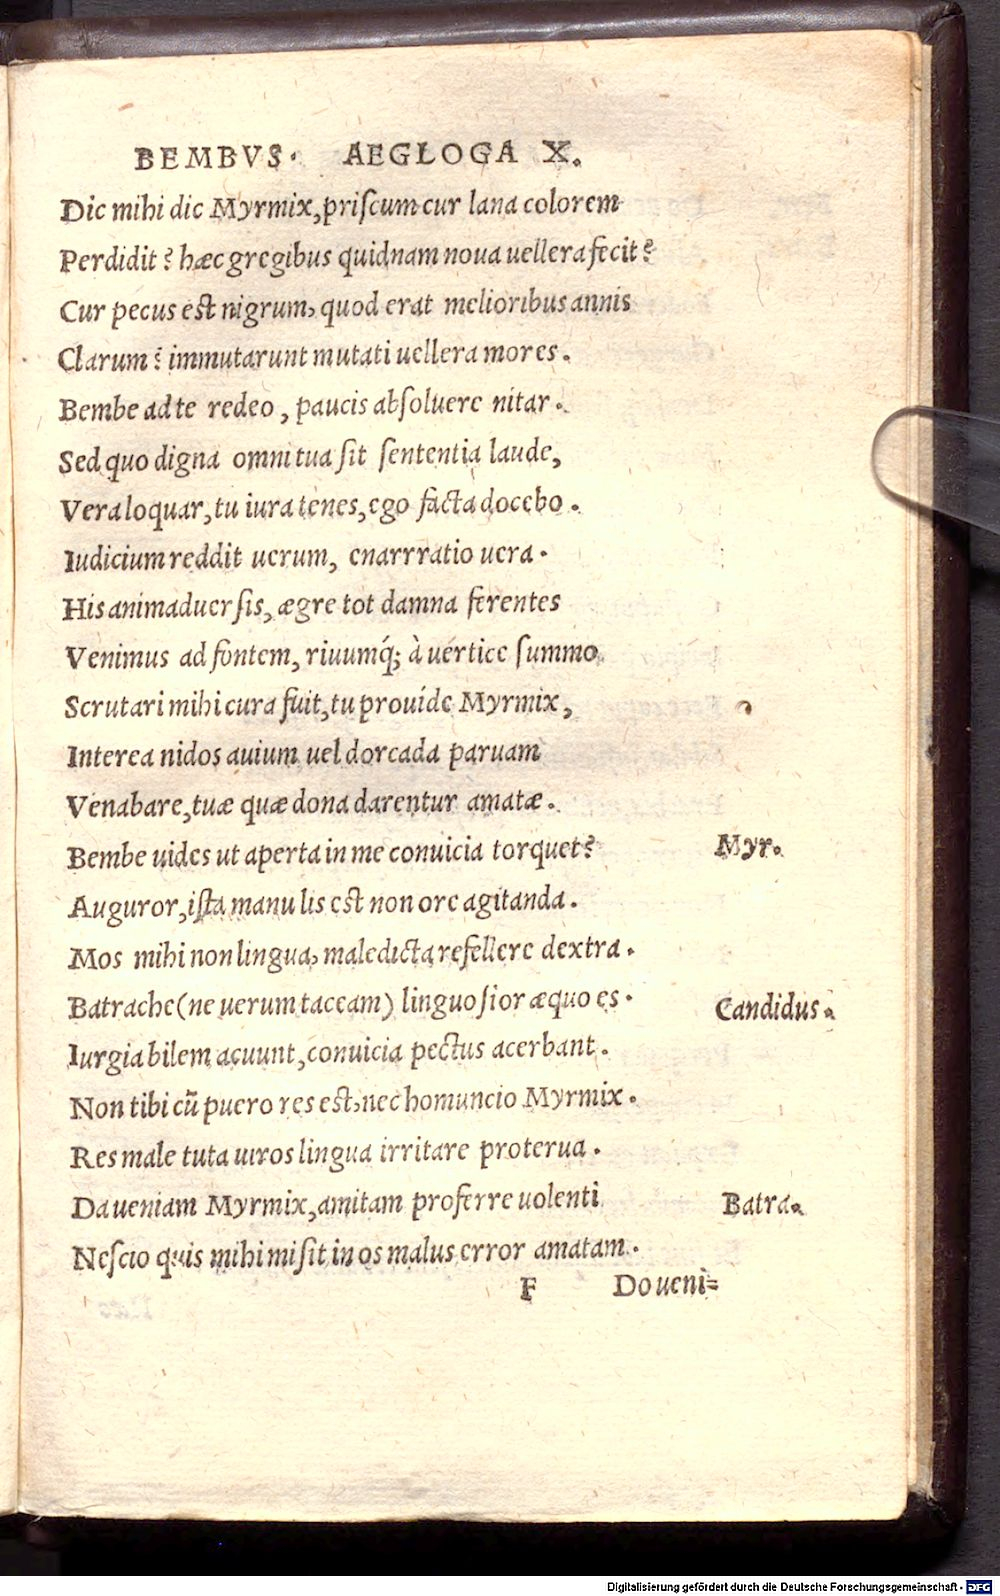 BEMBVS. AEGLOGA X.
Dic mihi dic Myrmix, priſcum cur lana colorem
Perdidit? hæc gregibus quidnam noua uellera fecit?
Cur pecus est nigrum, quod erat melioribus annis
Clarum? immutarunt mutati uellera mores.
Bembe ad te redeo, paucis abſoluere nitar.
Sed quo digna omni tua ſit ſententia laude,
Vera loquar, tu iura tenes, ego facta docebo.
Iudicium reddit uerum, enarrratio uera.
His animaduerſis, ægre tot damna ferentes
Venimus ad fontem, riuumq́; à uértice ſummo,
Scrutari mihi cura fuit, tu prouíde Myrmix,
Interea nidos auium uel dorcada paruam
Venabare, tuæ quæ dona darentur amatæ.
Bembe uides ut aperta in me conuicia torquet? Myr.
Auguror, iſta manu lis est non ore agitanda.
Mos mihi non lingua, maledicta refellere dextra.
Batrache (ne uerum taceam) linguoſior æquo es. Candidus.
Iurgia bilem acuunt, conuicia pectus acerbant.
Non tibi cũ puero res est, nec homuncio Myrmix.
Res male tuta uiros lingua irritare proterua.
Da ueniam Myrmix, amitam proferre uolenti Batra.
Neſcio quis mihi miſit in os malus error amatam.
F Do ueni=
Digitalisierung gefördert durch die Deutsche Forschungsgemeinschaft - DFG